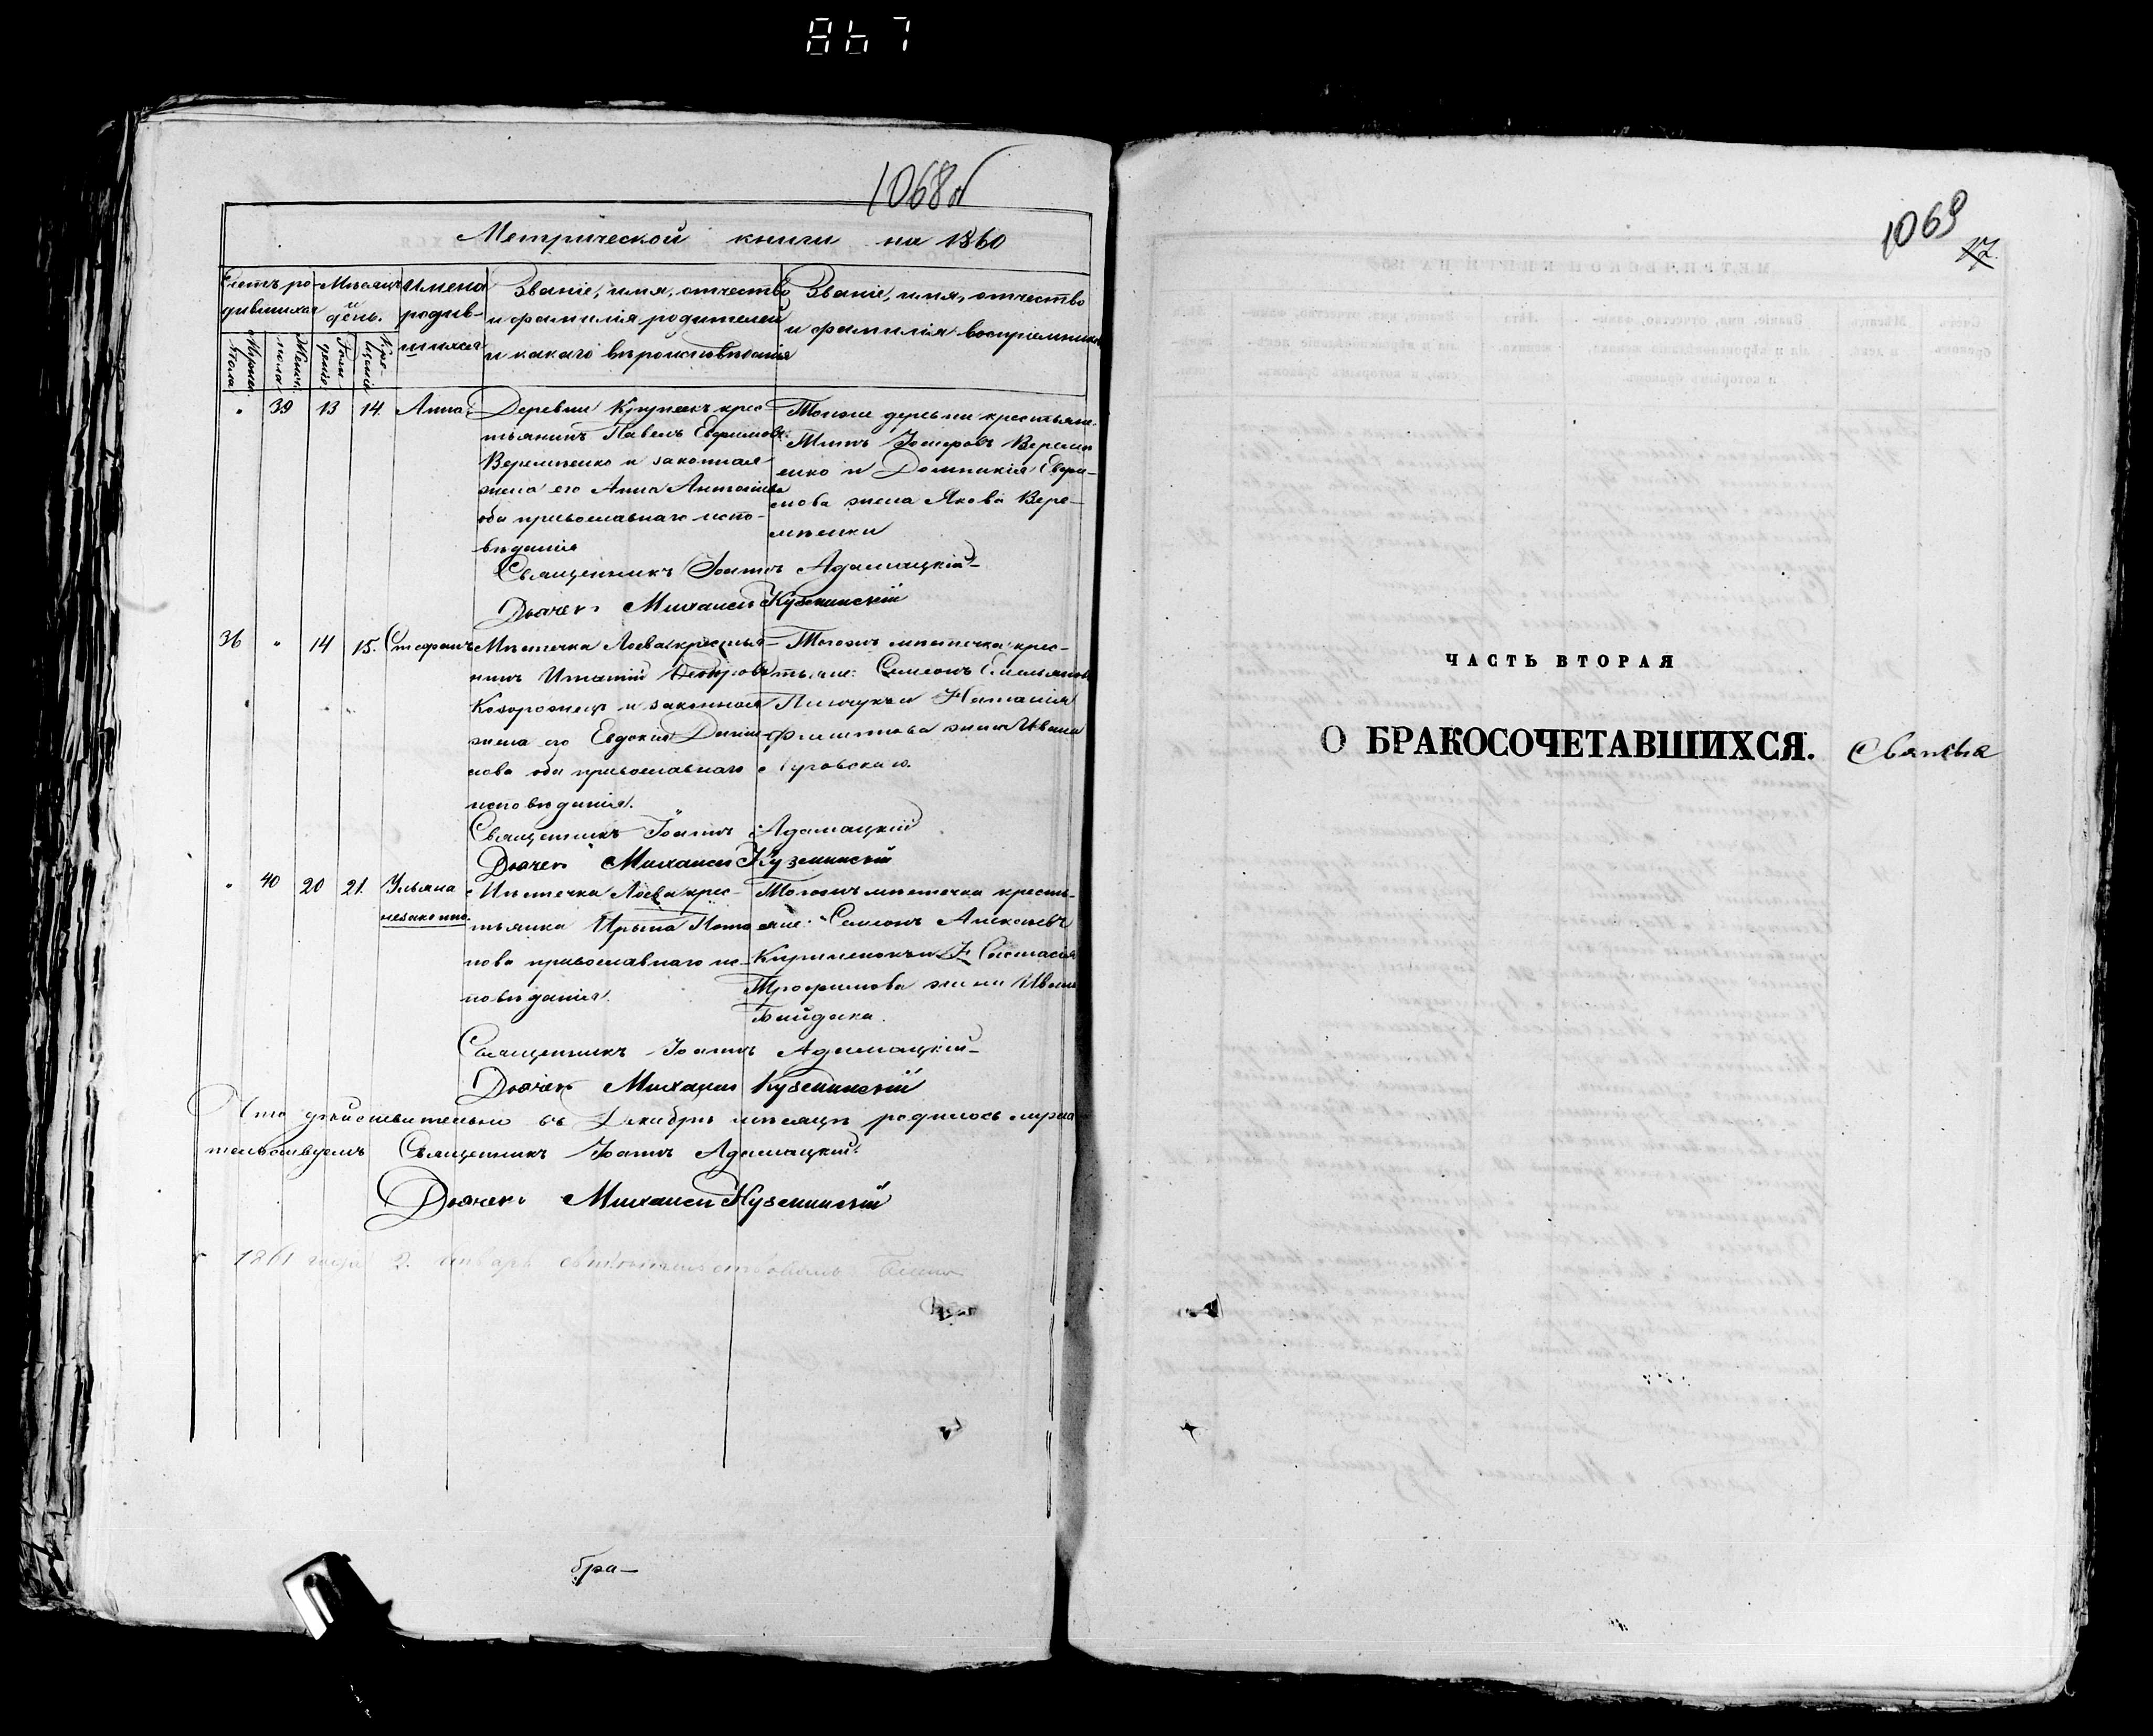 867
1068 об
Метрической книги на 1860
Счетъ ро-
дившихся
Мѣсяцъ
и
день.
Имена
родив-
шихся
Званіе, имя, отчество
и фамилія родителей
и какаго вѣроисповѣданія
Званіе, имя, отчество
и фамилія воспріемник
Мужеска
пола
Женска
пола
Рож-
денія
Кре-
щенія
" 39 13 14. Анна
Деревни крес-
тьянинъ Павелъ Ефимовъ
Веремѣенко и законная
жена его Анна Антонова
оба православнаго испо-
вѣданія
Тоиже деревни крестьяне:
Титъ Веремѣ
енко и Домникія Ефри-
мова жена Якова Вере-
мѣенки
Священникъ Іоаннъ Адамацкій
Дьячекъ Михаилъ Кузминскій
36 " 14 15. Стефанъ
Мѣстечка Лоева крестья-
нинъ Игнатій Петровъ
и законная
жена его Евдокия Дани-
лова оба православнаго
исповѣданія.
Тогожъ мѣстечка крес-
тьяне: Семеонъ Емельяновъ
Пинчукъ и Наталія
Филиппова жена Ивана
Священникъ Іоаннъ Адамацкій
Дьячекъ Михаилъ Кузминскій
" 40 20 21. Ульяна
незаконно.
Мѣстечка Лоева крес-
тьянка Ирына Пота
пова православнаго ис-
повѣданія.
Тогожъ мѣстечка кресть-
яне: Семеонъ Алексѣевъ
Кириленокъ и Састасія
Трофимова жена Ивана
Байдака.
Священникъ Іоаннъ Адамацкій
Дьячекъ Михаилъ Кузминскій
Что дѣйствительно въ Декабрѣ мѣсяцѣ родилось
тельствуемъ Священникъ Іоаннъ Адамацкій
Дьячекъ Михаилъ Кузминскій
1861 года 2. Январь свидѣтельствовалъ
бра-
1069
17.
ЧАСТЬ ВТОРАЯ
О БРАКОСОЧЕТАВШИХСЯ.